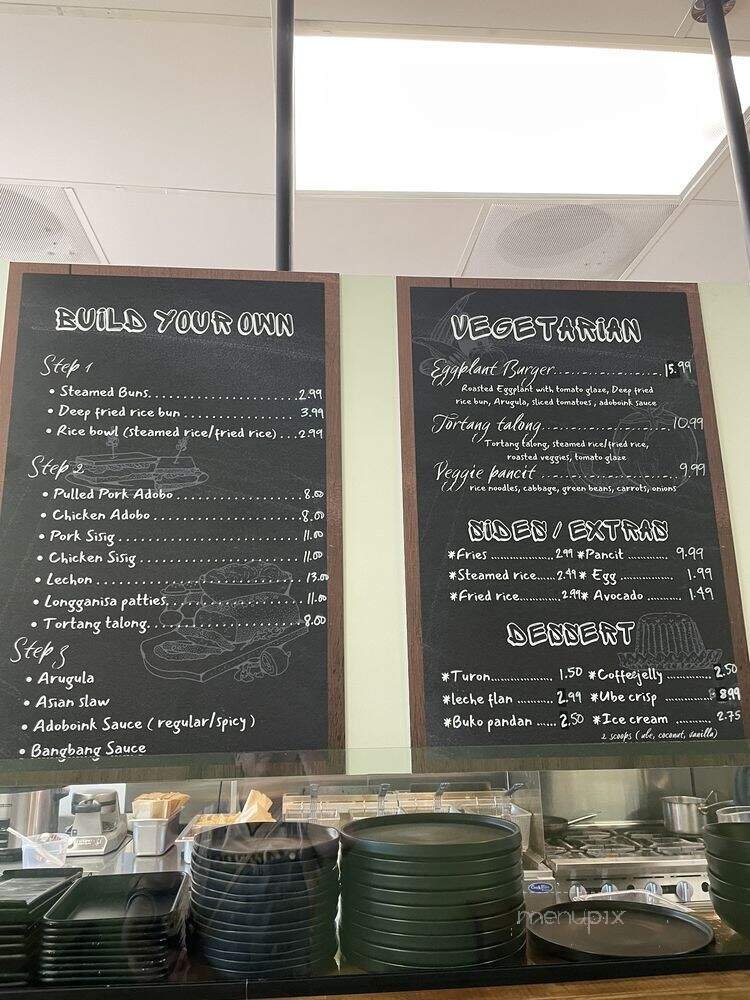 BUILD YOUR OWN
Step 1
• Steamed Buns.............................2.99
• Deep fried rice bun......................3.99
• Rice bowl (steamed rice/fried rice)...2.99
Step 2
• Pulled Pork Adobo.......................8.00
• Chicken Adobo...........................8.00
• Pork Sisig..............................11.00
• Chicken Sisig...........................11.00
• Lechon..................................13.00
• Longganisa patties......................11.00
• Tortang talong..........................8.00
Step 3
• Arugula
• Asian slaw
• Adoboink Sauce ( regular/spicy )
• Bangbang Sauce
VEGETARIAN
Eggplant Burger........................15.99
Roasted Eggplant with tomato glaze, Deep fried
rice bun, Arugula, sliced tomatoes , adoboink sauce
Tortang talong.........................10.99
Tortang talong, steamed rice/fried rice,
roasted veggies, tomato glaze
Veggie pancit..........................9.99
rice noodles, cabbage, green beans, carrots, onions
SIDES / EXTRAS
*Fries ...............2.99 *Pancit.......... 9.99
*Steamed rice......2.49 * Egg ............. 1.99
*Fried rice..........2.99 * Avocado ......... 1.49
DESSERT
*Turon............... 1.50 *Coffeejelly ...........2.50
*leche flan ......... 2.99 *Ube crisp ............8.99
*Buko pandan ...... 2.50 *Ice cream .......... 2.75
2 scoops ( ube, coconut, vanilla)
menupix